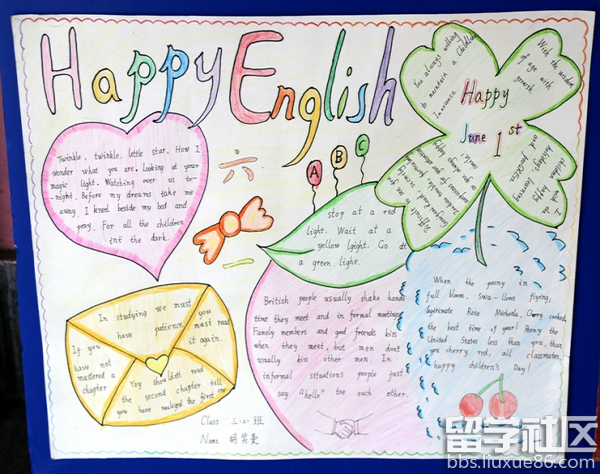 Happy English
Twinkle, twinkle, little star. How I
wonder what you are. Looking at your
magic light. Watching over us to
-night. Before my dreams take me
away. I kneed beside my bed and
pray. For all the children
int the dark.
六
一
A
B
C
stop at a red
light. Wait at a
yellow lgight. Go at
a green lighe.
You always willing
to maintain a childlike
With the wisdom
of age with
growth.
Happy
June 1st
In studying we must
have patience, you must read
it again.
If you
have not
mastered a
chapter
You shouldn't read
the second chapter till
you have realized the first one
British people usually shake hands
time they meet and in formal meetings
Family members and good friends kiss
when they meet, but men don't
usually kiss other men. In
informal situations people just
say "hello" toe each other.
When the peony in
full bloom, Swa-llows flying,
legitimate Rose Michelia, Cherry cooked,
the best time of year! Peony the
United States less than you, than
you sherry red, all classmates,
happy children's Day!
Class 三.二班
Name 胡英曼
留学社区
bbs.liuxue86.com